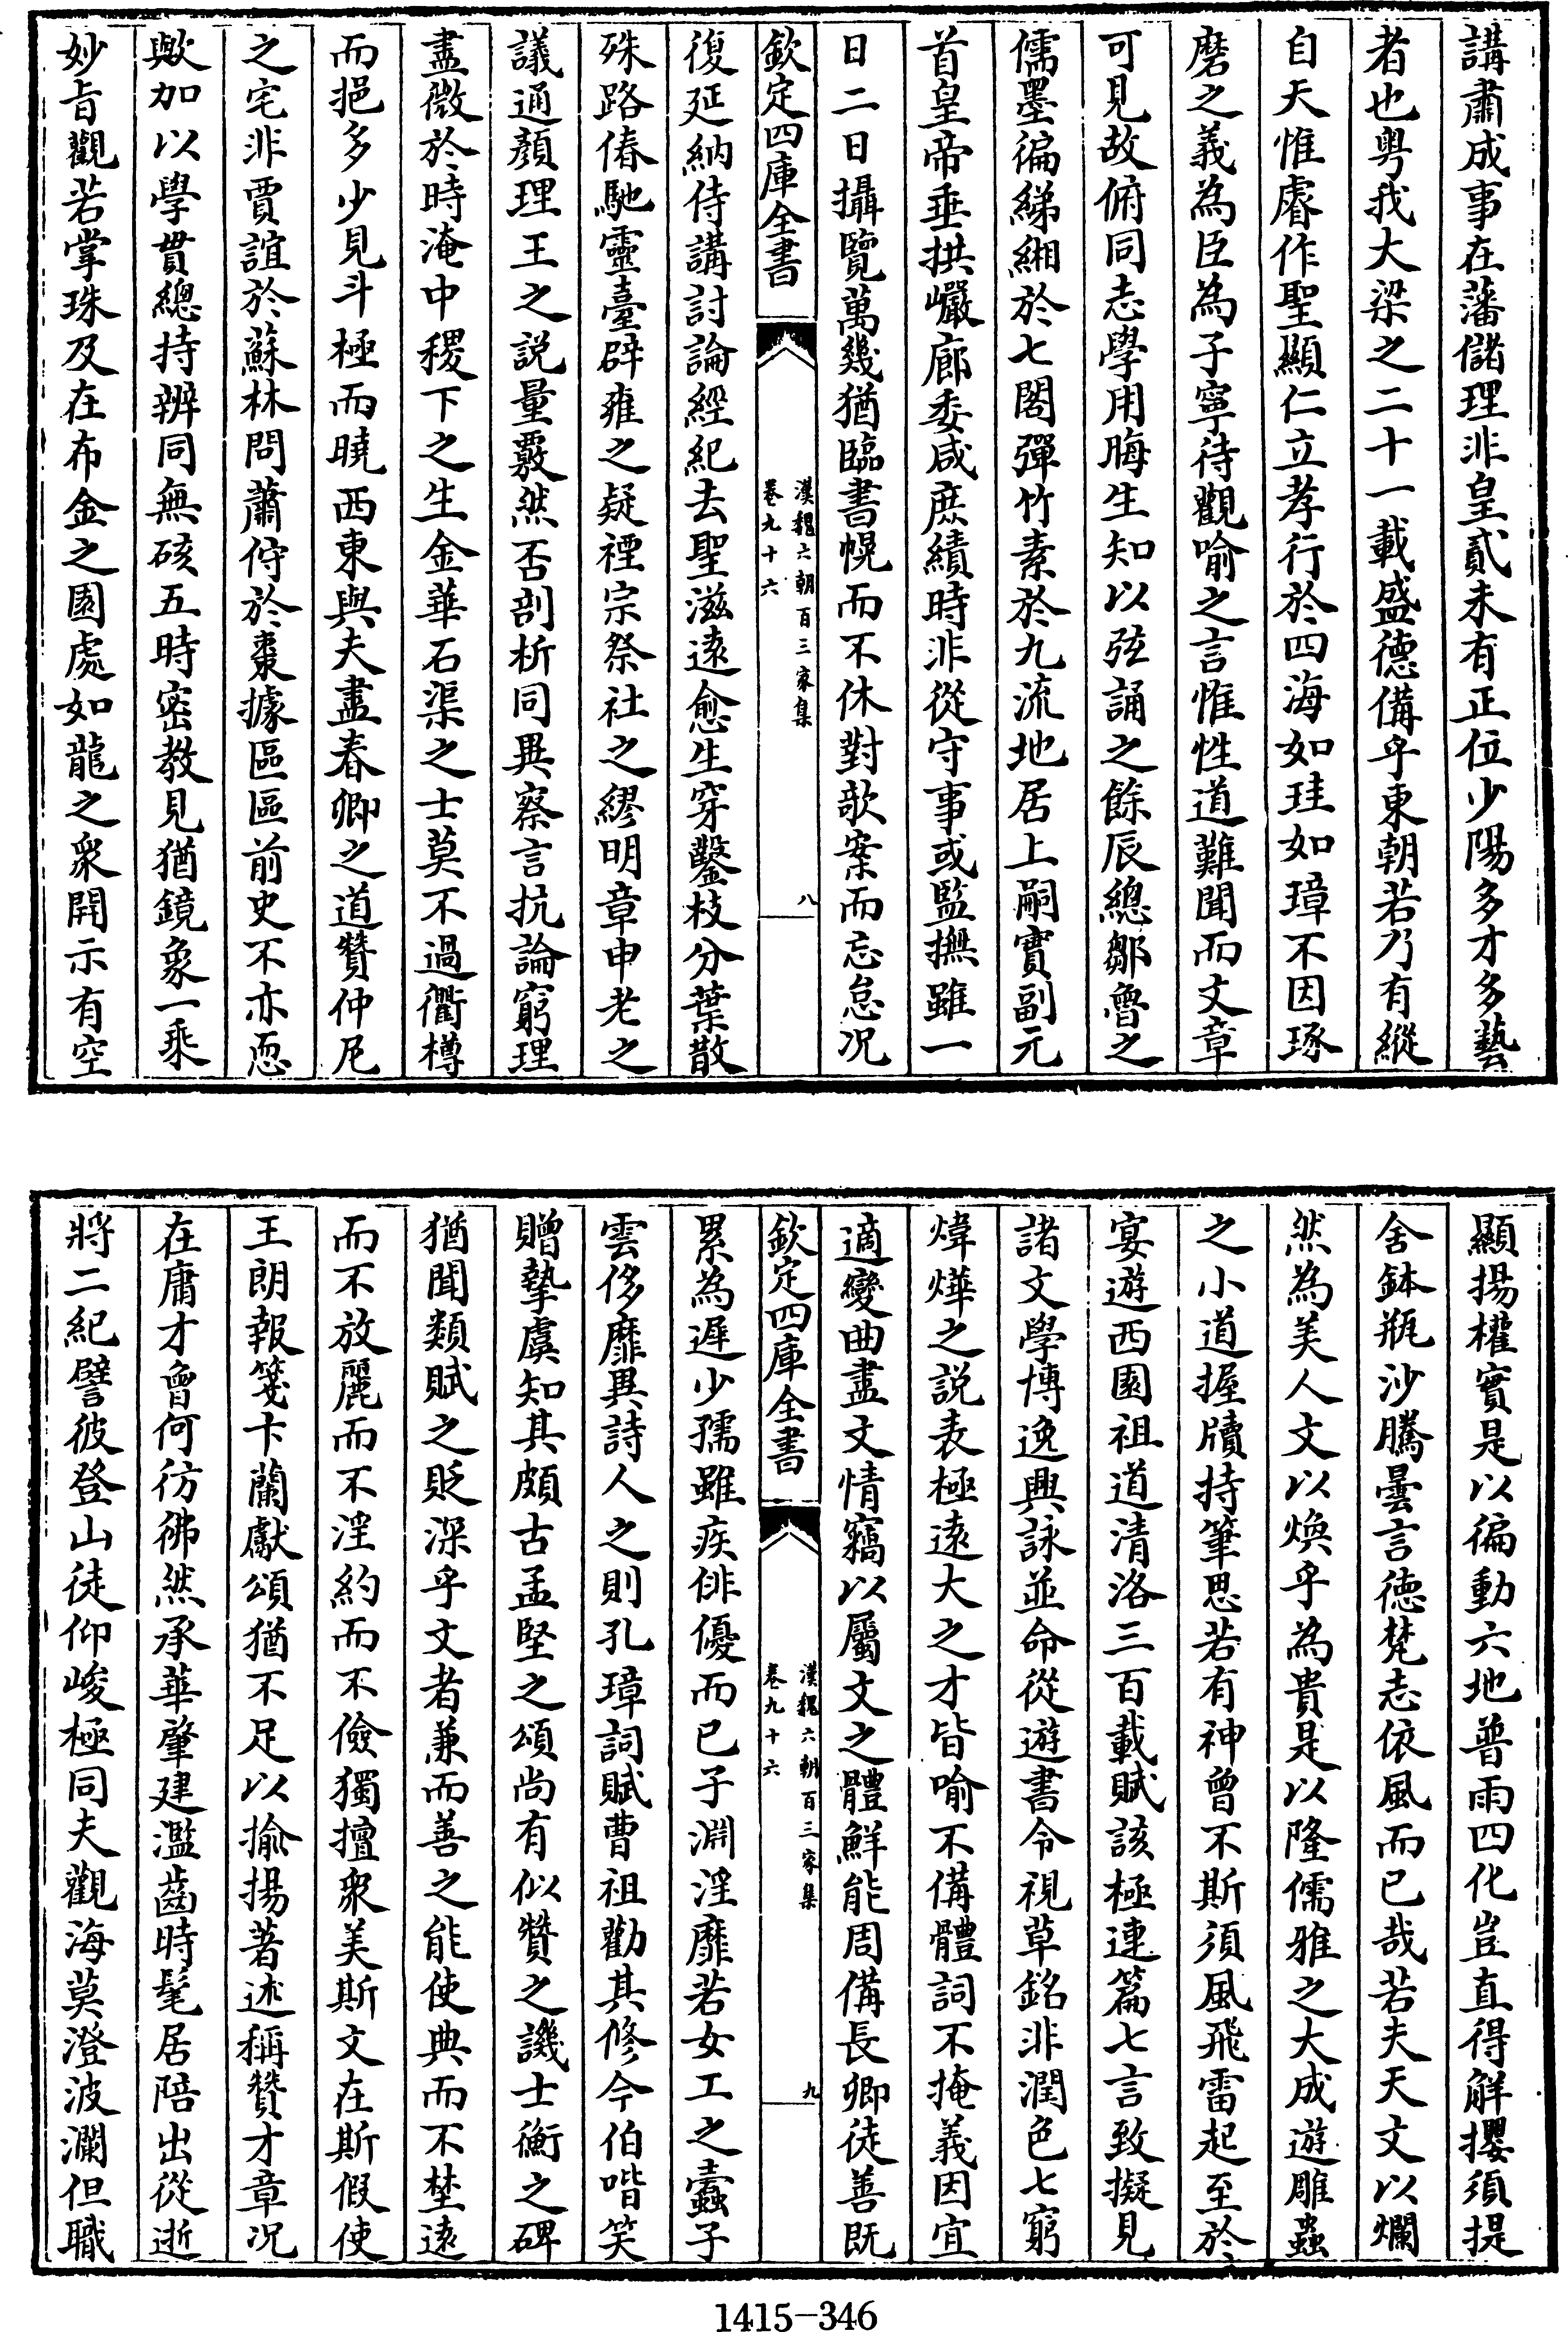 講肅成事在藩儲理非皇貳未有正位少陽多才多藝
者也粤我大梁之二十一載盛德備乎東朝若乃有縱
自天惟睿作聖顯仁立孝行於四海如珪如璋不因琢
磨之義為臣為子寧待觀喻之言惟性道難聞而文章
可見故俯同志學用晦生知以弦誦之餘辰總鄒魯之
儒墨徧綈緗於七閣彈竹素於九流地居上嗣實副元
首皇帝垂拱巗廊委咸庶績時非從守事或監撫雖一
日二日攝覽萬幾猶臨書幌而不休對欹案而忘怠况
欽定四庫全書
漢魏六朝百三家集
卷九十六
八
復延納侍講討論經紀去聖滋逺愈生穿鑿枝分葉散
殊路偆馳靈臺辟雍之疑禋宗祭社之繆明章申老之
議通顏理王之説量覈然否剖析同異察言抗論窮理
盡微於時淹中稷下之生金華石渠之士莫不過衢樽
而挹多少見斗極而曉西東與夫盡春卿之道贊仲尼
之宅非賈誼於蘇林問蕭侍於棗據區區前史不亦恧
歟加以學貫總持辨同無硋五時密教見猶鏡象一乘
妙旨觀若掌珠及在布金之園處如龍之衆開示有空
顯揚權實是以徧動六地普雨四化豈直得解攖須提
舍鉢瓶沙騰曇言德梵志依風而已哉若夫天文以爛
然為美人文以煥乎為貴是以隆儒雅之大成遊雕蟲
之小道握牘持筆思若有神曾不斯須風飛雷起至於
宴遊西園祖道清洛三百載賦該極連篇七言致擬見
諸文學博逸興詠並命從遊書令視草銘非潤色七窮
煒燁之説表極逺大之才皆喻不備體詞不掩義因宜
適變曲盡文情竊以屬文之體鮮能周備長卿徒善既
欽定四庫全書
漢魏六朝百三家集
卷九十六
九
累為遲少孺雖疾俳優而已子淵淫靡若女工之蠧子
雲侈靡異詩人之則孔璋詞賦曹祖勸其修今伯喈笑
贈摯虞知其頗古孟堅之頌尚有似贊之譏士衡之碑
猶聞類賦之貶深乎文者兼而善之能使典而不埜逺
而不放麗而不淫約而不儉獨擅衆美斯文在斯假使
王朗報箋卞蘭獻頌猶不足以揄揚著述稱贊才章况
在庸才曾何彷彿然承華肇建濫齒時髦居陪出從逝
將二紀譬彼登山徒仰峻極同夫觀海莫澄波瀾但職
1415-346